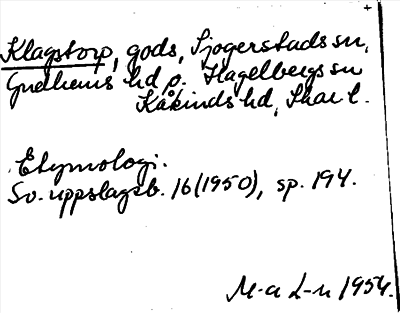 Klagstorp, gods, Sjogerstads sn,
Gudhems hd o. Hagelbergs sn
Kåkinds hd, Skar. l.
Etymologi.
Sv. uppslagsb. 16 (1950), sp. 194.
M-a L-n 1954.